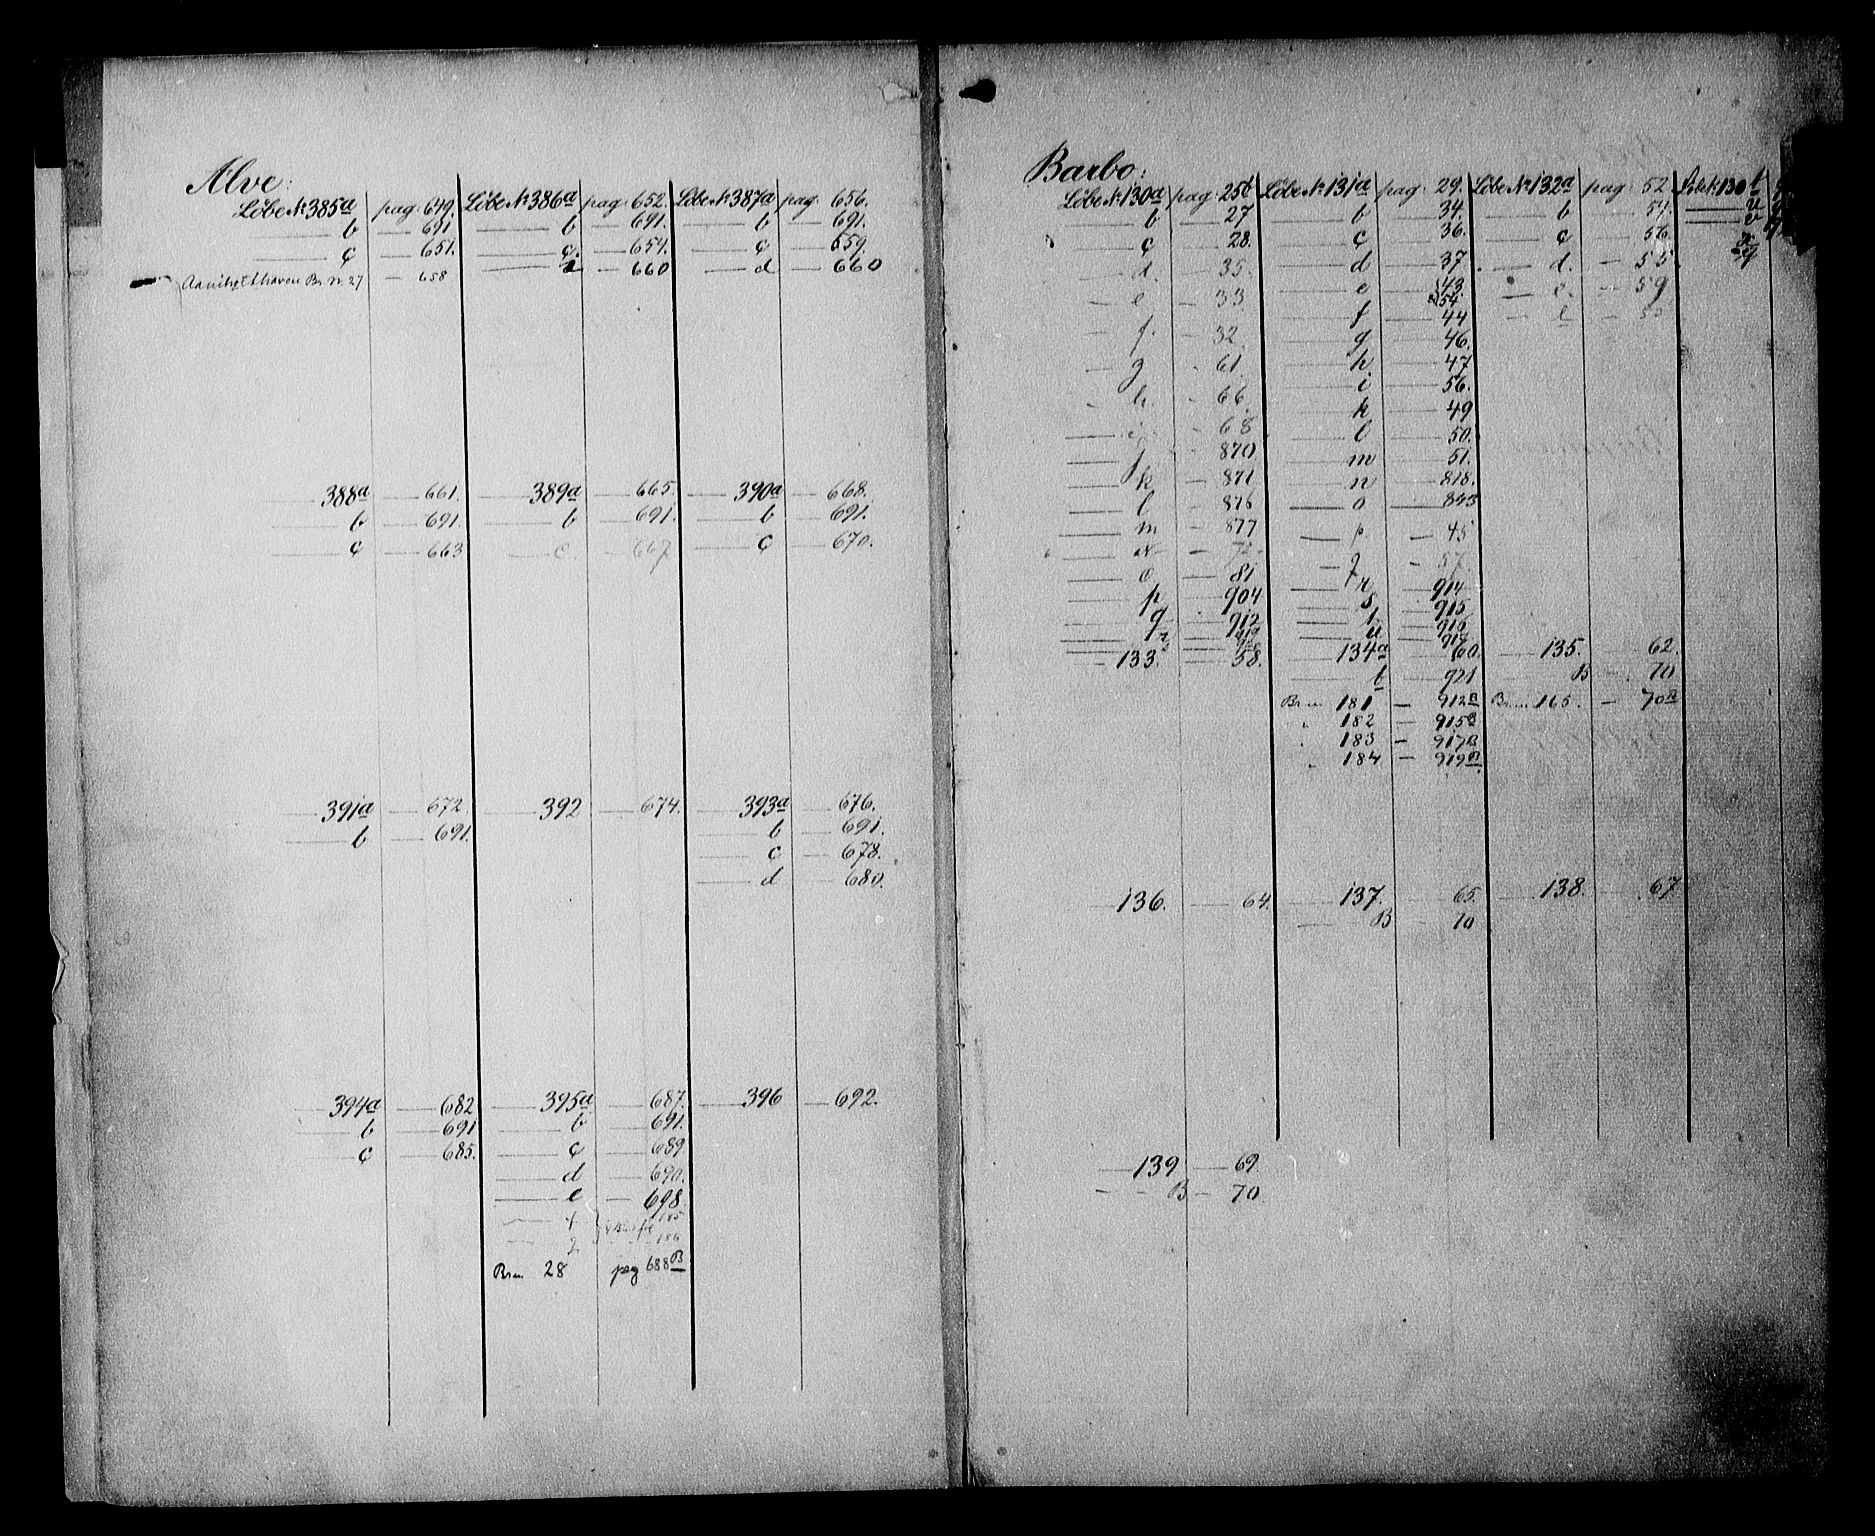 Alve:
Löbe No 385a pag: 649. Löbe No 386a pag: 652. Löbe No 387a pag: 656.
b 691 b 691. b 691.
c 651. c. 654. c 659.
d 660 d 660
Br. n. 27 658
388a 661. 389a 665. 390a 668.
b 691. b 691. b 691.
c 663 c 667. c 670.
391a 672 392 674. 393a 676.
b 691. b 691.
c 678.
d 680.
394a 682 395a 687. 396 692.
b 691 b 691.
c 685. c 689
d 690.
e 698.
f 185
g 186
Brn 28 pag 688B
Barbo:
Löbe No 130a pag: 256 Löbe No 131a pag: 29. Löbe No 132a pag: 52. Löbe No 130 t
b 27 b 34. b 54. u
c 28. c 36. c 56. v
d. 35. d 37 d. 55 x
e 33 e 43. e. 59 y
54.
f. 32. f 44 e 50
g 61. g 46.
h. 66. h 47
i 68 i 56.
j 870. k 49
k 871 l 50.
l 876 m 51.
m 877 n 818.
n o 843
o 81 p 45
p 904 q 57.
q 912 r 914
r 919 s 915
s t 916
u 917
133. 58. 134a 60. 135. 62.
b 921 B 70
Brn 181 912B Brn 165. 70B
182 915B
183 917B
184 919B
136. 64. 137. 65. 138. 67
B 70
139 69.
B 70